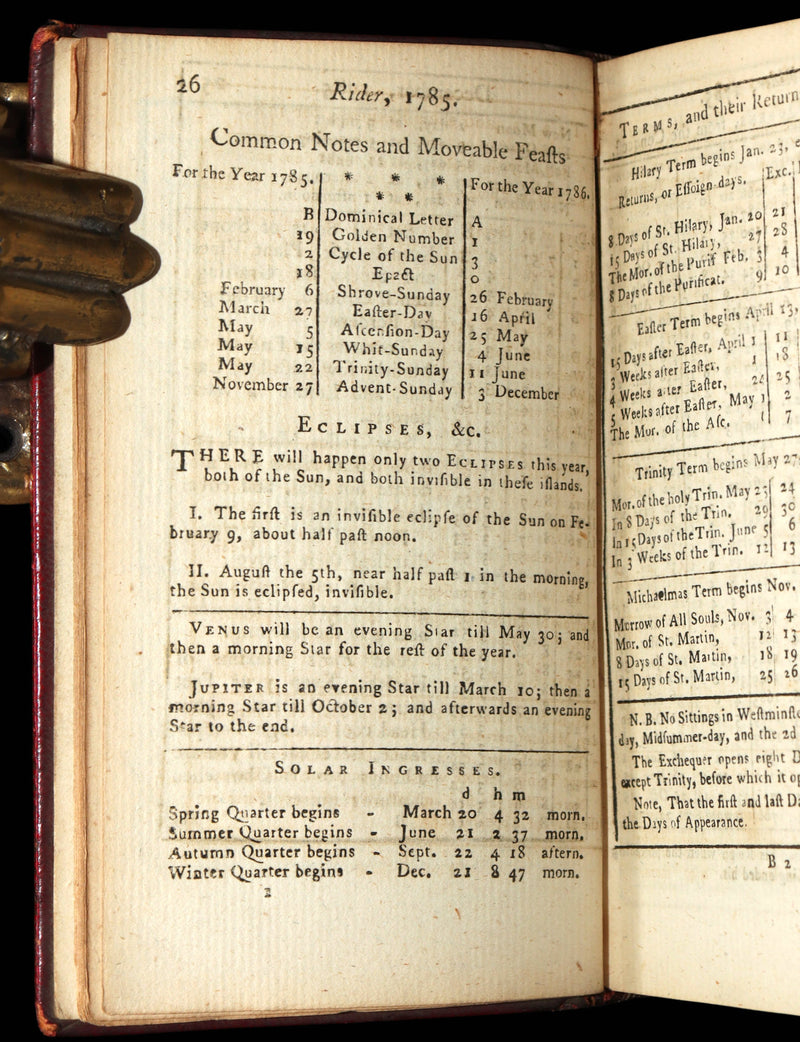 26
Rider, 1785.
Common Notes and Moveable Feaſts
For the Year 1785. * * * For the Year 1786.
* *
B Dominical Letter A
19 Golden Number 1
2 Cycle of the Sun 3
18 Epact 0
February 6 Shrove-Sunday 26 February
March 27 Eaſter-Day 16 April
May 5 Aſcenſion-Day 25 May
May 15 Whit-Sunday 4 June
May 22 Trinity-Sunday 11 June
November 27 Advent-Sunday 3 December
ECLIPSES, &c.
THERE will happen only two ECLIPSES this year,
both of the Sun, and both inviſible in theſe iſlands.
I. The firſt is an inviſible eclipſe of the Sun on Fe-
bruary 9, about half paſt noon.
II. Auguſt the 5th, near half paſt 1 in the morning,
the Sun is eclipſed, inviſible.
VENUS will be an evening Star till May 30; and
then a morning Star for the reſt of the year.
JUPITER is an evening Star till March 10; then a
morning Star till October 2; and afterwards an evening
Star to the end.
SOLAR INGRESSES.
d h m
Spring Quarter begins - March 20 4 32 morn.
Summer Quarter begins - June 21 2 37 morn.
Autumn Quarter begins - Sept. 22 4 18 aftern.
Winter Quarter begins - Dec. 21 8 47 morn.
TERMS, and their Return
Hilary Term begins Jan. 23,
Returns, or Eſſoign-days. Exc.
8 Days of St. Hilary, Jan. 20 21
15 Days of St. Hilary, 27 28
The Mor. of the Purif Feb. 3 4
8 Days of the Purificat. 9 10
Eaſter Term begins April 13,
15 Days after Eaſter, April 1 11
3 Weeks after Eaſter, 1 18
4 Weeks after Eaſter, 24 25
5 Weeks after Eaſter, May 1 2
The Mor. of the Aſc. 7
Trinity Term begins May 27
Mor. of the holy Trin. May 23 24
In 8 Days of the Trin. 29 30
In 15 Days of the Trin. June 5 6
In 3 Weeks of the Trin. 12 13
Michaelmas Term begins Nov.
Morrow of All Souls, Nov. 3 4
Mor. of St. Martin, 12 13
8 Days of St. Martin, 18 19
15 Days of St. Martin, 25 26
N. B. No Sittings in Weſtminſte
day, Midſummer-day, and the 2d
The Exchequer opens eight D
except Trinity, before which it op
Note, That the firſt and laſt Da
the Days of Appearance.
B 2